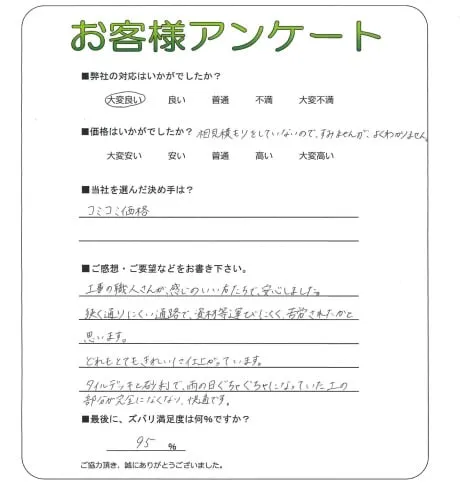 お客様アンケート
■弊社の対応はいかがでしたか？
大変良い 良い 普通 不満 大変不満
■価格はいかがでしたか？ 相見積もりをしていないので、すみませんが、よくわかりません。
大変安い 安い 普通 高い 大変高い
■当社を選んだ決め手は？
コミコミ価格
■ご感想・ご要望などをお書き下さい。
工事の職人さんが、感じのいい方たちで、安心しました。
狭く通りにくい通路で、資材等運びにくく、苦労されたかと
思います。
どれもとてもきれいに仕上がっています。
タイルデッキと砂利で、雨の日ぐちゃぐちゃになっていた土の
部分が完全になくなり、快適です。
■最後に、ズバリ満足度は何％ですか？
95 ％
ご協力頂き、誠にありがとうございました。